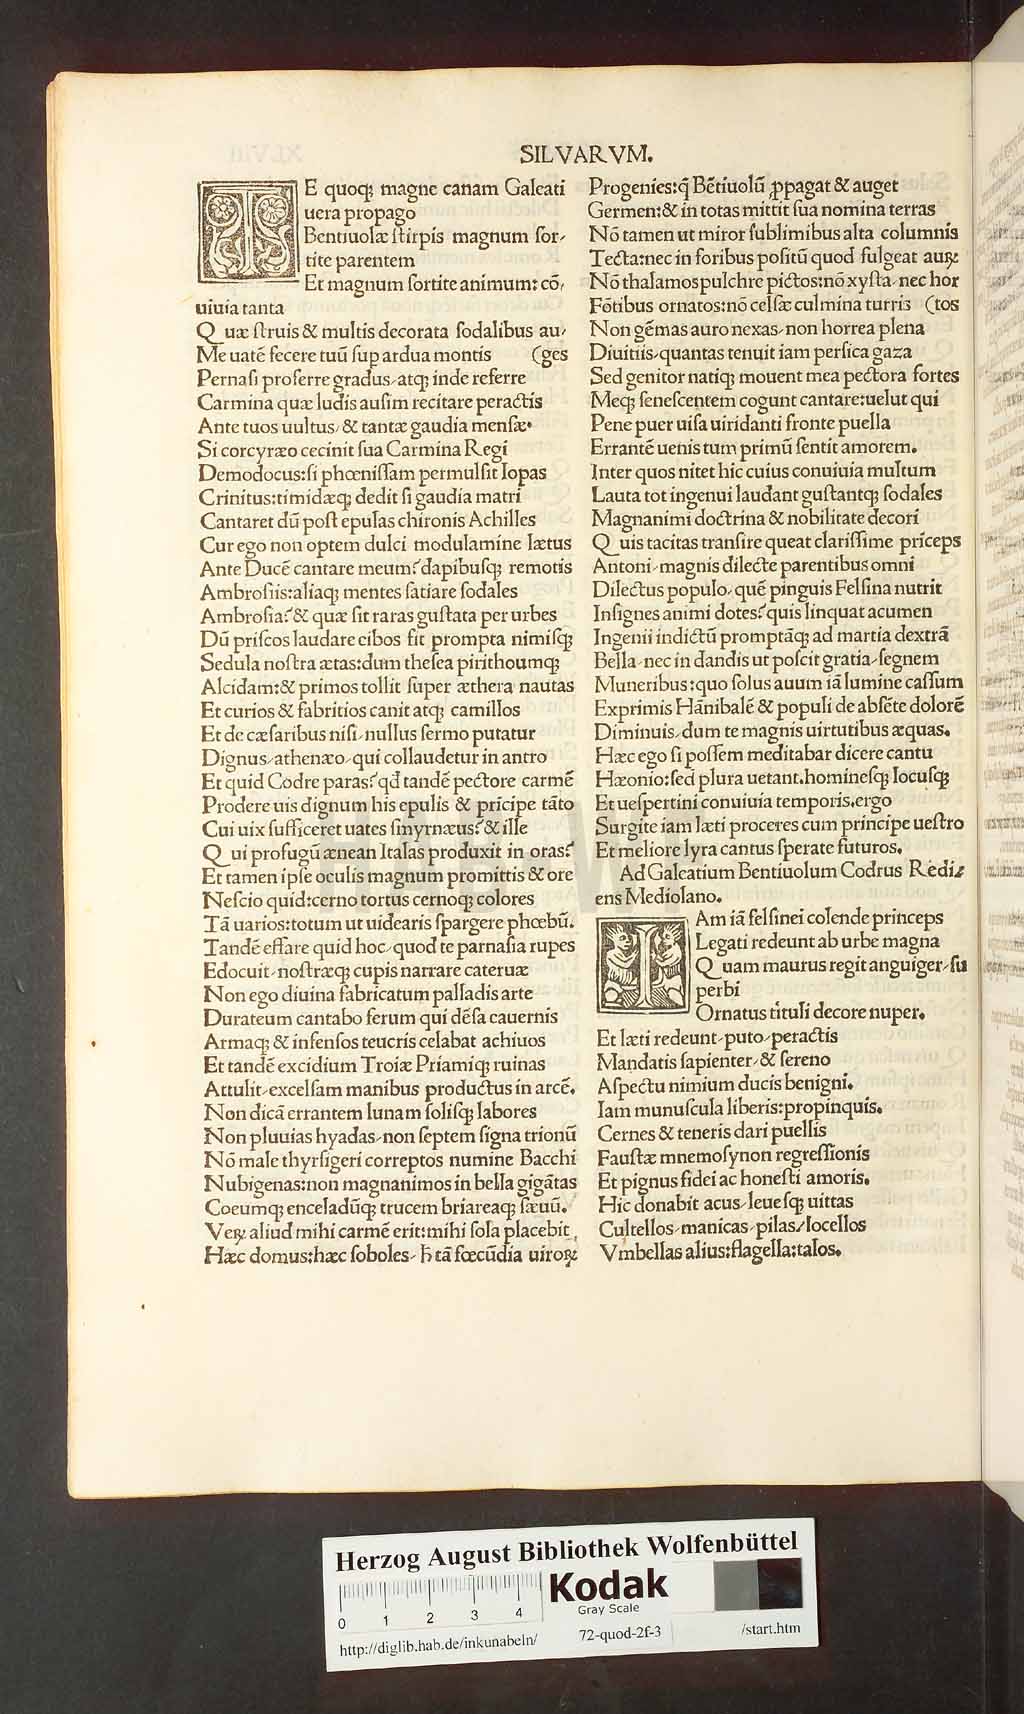 SILVARVM.
TE quoqꝫ magne canam Galeati
uera propago
Bentiuolæ ſtirpis magnum ſor-
tite parentem
Et magnum ſortite animum: cō-
uiuia tanta
Quæ ſtruis & multis decorata ſodalibus au-
Me uatē fecere tuū ſup ardua montis (ges
Pernaſi proferre gradus, atqꝫ inde referre
Carmina quæ ludis auſim recitare peractis
Ante tuos uultus, & tantæ gaudia menſæ.
Si corcyræo cecinit ſua Carmina Regi
Demodocus: ſi phœniſſam permulſit Iopas
Crinitus: timidæqꝫ dedit ſi gaudia matri
Cantaret dū poſt epulas chironis Achilles
Cur ego non optem dulci modulamine lætus
Ante Ducē cantare meum? dapibuſqꝫ remotis
Ambroſiis: aliaqꝫ mentes ſatiare ſodales
Ambroſia? & quæ ſit raras guſtata per urbes
Dū priſcos laudare cibos fit prompta nimiſqꝫ
Sedula noſtra ætas: dum theſea pirithoumqꝫ
Alcidam: & primos tollit ſuper æthera nautas
Et curios & fabritios canit atqꝫ camillos
Et de cæſaribus niſi, nullus ſermo putatur
Dignus, athenæo, qui collaudetur in antro
Et quid Codre paras? qđ tandē pectore carmē
Prodere uis dignum his epulis & pricipe tāto
Cui uix ſufficeret uates ſmyrnæus? & ille
Qui profugū ænean Italas produxit in oras?
Et tamen ipſe oculis magnum promittis & ore
Neſcio quid: cerno tortus cernoqꝫ colores
Iā uarios: totum ut uidearis ſpargere phœbū.
Tandē effare quid hoc, quod te parnaſia rupes
Edocuit, noſtræqꝫ cupis narrare cateruæ
Non ego diuina fabricatum palladis arte
Durateum cantabo ferum qui dēſa cauernis
Armaqꝫ & infenſos teucris celabat achiuos
Et tandē excidium Troiæ Priamiqꝫ ruinas
Attulit, excelſam manibus productus in arcē.
Non dicā errantem lunam ſoliſqꝫ labores
Non pluuias hyadas, non ſeptem ſigna trionū
Nō male thyrſigeri correptos numine Bacchi
Nubigenas: non magnanimos in bella gigātas
Coeumqꝫ enceladūqꝫ trucem briareaqꝫ ſæuū.
Veꝝ aliud mihi carmē erit: mihi ſola placebit
Hæc domus: hæc ſoboles, ħ tā fœcūdia uiroꝝ
Progenies: q̄ Bētiuolū ꝓpagat & auget
Germen: & in totas mittit ſua nomina terras
Nō tamen ut miror ſublimibus alta columnis
Tecta: nec in foribus poſitū quod fulgeat auꝝ
Nō thalamos pulchre pictos: nō xyſta, nec hor
Fōtibus ornatos: nō celſæ culmina turris (tos
Non gēmas auro nexas, non horrea plena
Diuitiis, quantas tenuit iam perſica gaza
Sed genitor natiqꝫ mouent mea pectora fortes
Meqꝫ ſeneſcentem cogunt cantare: uelut qui
Pene puer uiſa uiridanti fronte puella
Errantē uenis tum primū ſentit amorem.
Inter quos nitet hic cuius conuiuia multum
Lauta tot ingenui laudant guſtantqꝫ ſodales
Magnanimi doctrina & nobilitate decori
Quis tacitas tranſire queat clariſſime prīceps
Antoni, magnis dilecte parentibus omni
Dilectus populo, quē pinguis Felſina nutrit
Inſignes animi dotes? quis linquat acumen
Ingenii indictū promptāqꝫ ad martia dextrā
Bella, nec in dandis ut poſcit gratia, ſegnem
Muneribus: quo ſolus auum iā lumine caſſum
Exprimis Hānibalē & populi de abſēte dolorē
Diminuis, dum te magnis uirtutibus æquas.
Hæc ego ſi poſſem meditabar dicere cantu
Hæonio: ſed plura uetant. homineſqꝫ locuſqꝫ
Et ueſpertini conuiuia temporis. ergo
Surgite iam læti proceres cum principe ueſtro
Et meliore lyra cantus ſperate futuros.
Ad Galeatium Bentiuolum Codrus Redi-
ens Mediolano.
IAm iā felſinei colende princeps
Legati redeunt ab urbe magna
Quam maurus regit anguiger, ſu
perbi
Ornatus tituli decore nuper.
Et læti redeunt, puto, peractis
Mandatis ſapienter, & ſereno
Aſpectu nimium ducis benigni.
Iam munuſcula liberis: propinquis.
Cernes & teneris dari puellis
Fauſtæ mnemoſynon regreſſionis
Et pignus fidei ac honeſti amoris.
Hic donabit acus, leueſqꝫ uittas
Cultellos, manicas, pilas, locellos
Vmbellas alius: flagella: talos.
HAB WF
Herzog August Bibliothek Wolfenbüttel
0 1 2 3 4
Kodak
Gray Scale
http://diglib.hab.de/inkunabeln/ 72-quod-2f-3 /start.htm